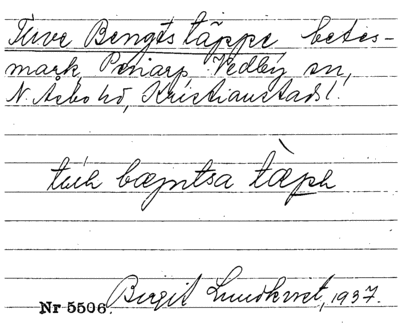 Tuve Bengts täppe betes-
mark, Prriarp Vedby sn,
N. Åsbo hd, Kristianstads l.
bæŋtsa tæph
Nr 5506. Birgit Lundkvist, 1937.